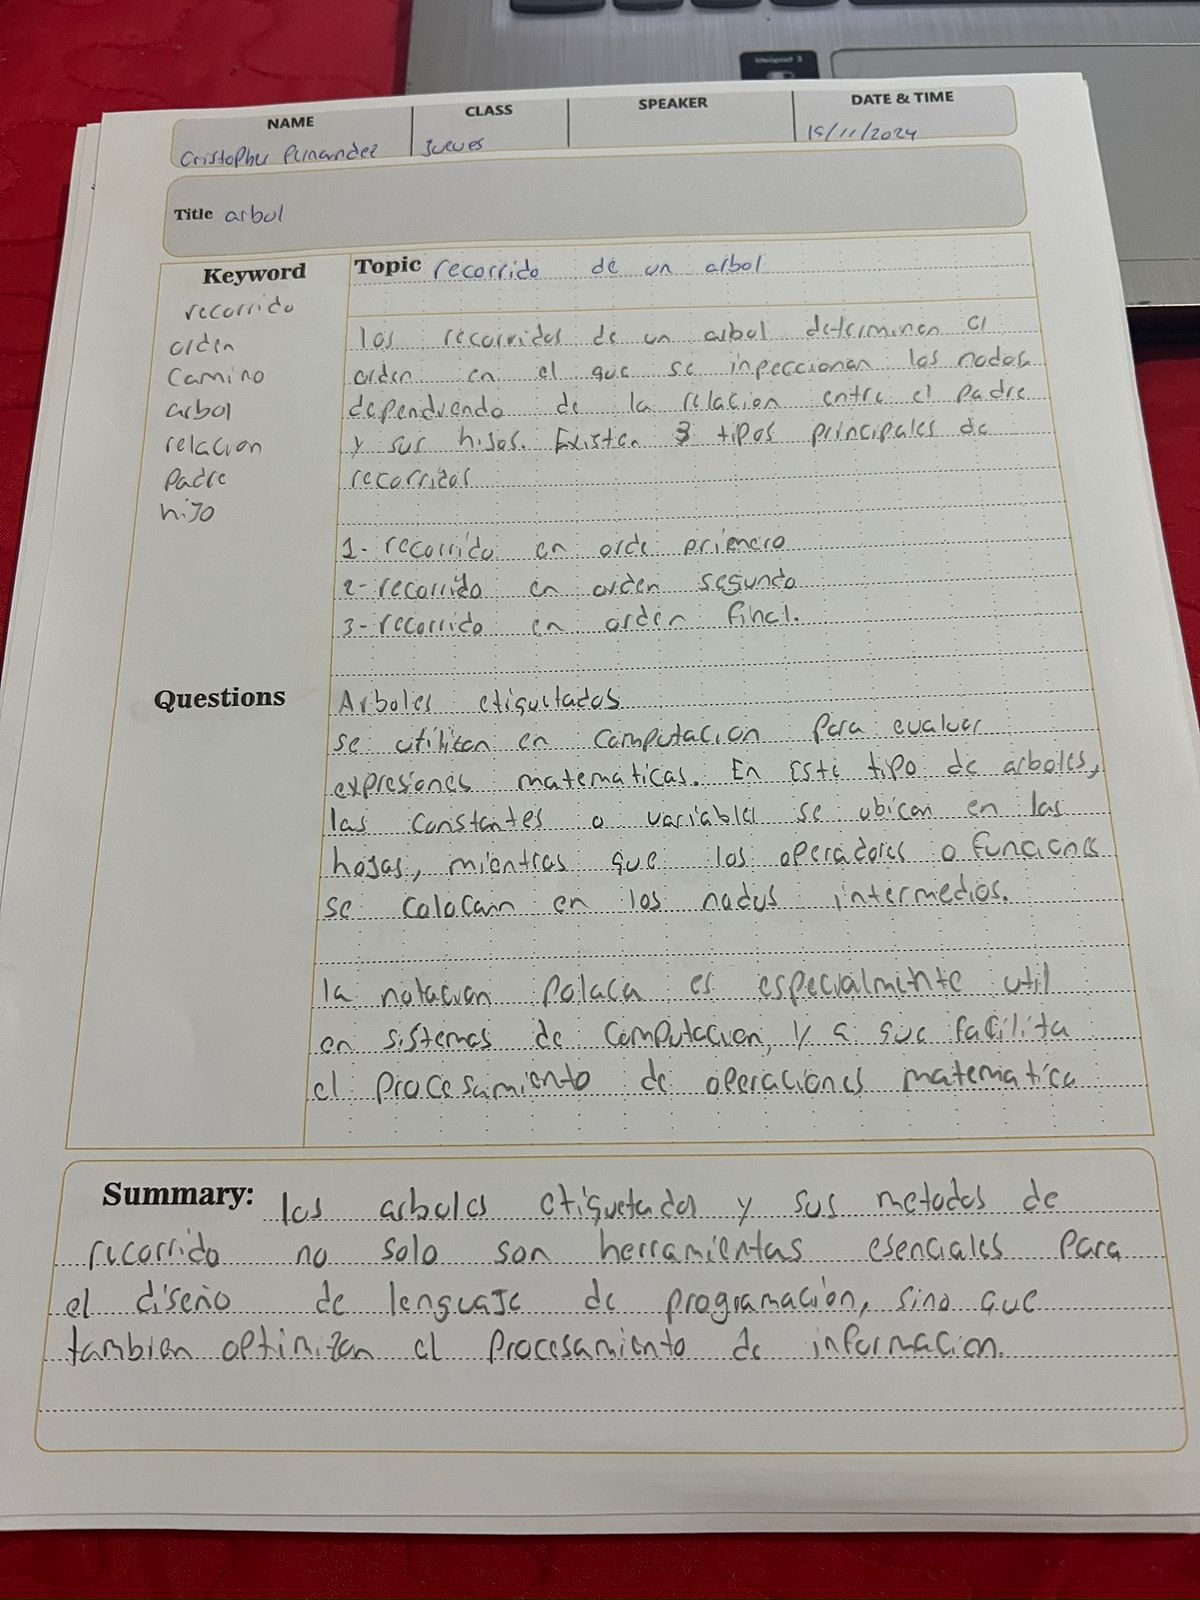 ideapad 3
NAME
CLASS
SPEAKER
DATE & TIME
Jueves
/11/2024
Title arbol
Keyword
recorrido
orden
camino
arbol
relacion
Padre
hijo
Topic recorrido de un arbol
los recorridos de un arbol determinen el
orden en el que se inpeccionan los nodos
dependiendo de la relacion entre el Padre
y sus hijos. Existen 3 tipos principales de
recorridos
1- recorrido en orde priemero
2- recorrido en orden segundo
3- recorrido en orden final.
Questions
Arboles etiquetados
se utilizan en computacion para evaluar
expresiones matematicas. En este tipo de arboles,
las constantes o variables se ubican en las
hojas, mientras que los operadores o funciones
se colocan en los nodos intermedios.
la notacion polaca es especialmente util
en sistemas de computacion, y a que facilita
el procesamiento de operaciones matematica
Summary: los arboles etiquetados y sus metodos de
recorrido no solo son herramientas esenciales para
el diseño de lenguaje de programación, sino que
tambien optimizan el procesamiento de informacion.